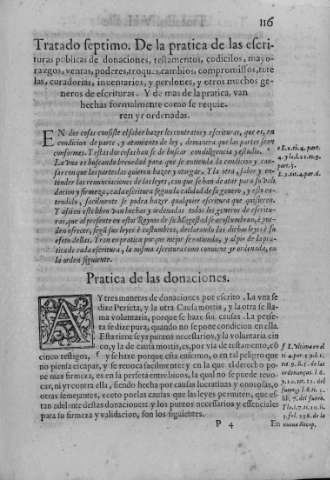 116
Tratado septimo. De la pratica de las escri-
turas publicas de donaciones, testamentos, codicilos, mayo-
razgos, ventas, poderes, troques, cambios, compromissos, tute
las, curadorias, inventarios, y perdones, y otros muchos ge-
neros de escrituras. Y de mas de la pratica, van
hechas formalmente como se requie-
ren y ordenadas.
EN dos cosas consiste el saber hazer los contratos y escrituras, que es, en
condicion de parte, y atamiento de ley, demanera que las partes sean
conformes. Y estas dos cosas se de buscar con diligencia y estudio.
La una es buscando brevedad para que se entienda la condicion, y cau-
sa en que las partes las quieren hazer y otorgar. Y la otra, saber y enten-
der las renunciaciones de las leyes, con que se han de atar para su vali-
dacion y firmeza, cada escritura segun la calidad de su genero, y esto enten-
dido, facilmente se podra hazer qualquier escritura que quisieren.
Y assi en este libro van hechas y ordenadas todos los generos de escritu-
ras, que al presente en este Reyno de
ofrecer, segun sus leyes y costumbres, declarando las dichas leyes y su
efeto dellas. Y van en pratica por que mejor se entienda, y al pie de la pra-
tica de cada escritura, la misma escritura como conviene y es ordenada, en
la orden siguiente.
Pratica de las donaciones.
AY tres maneras de donaciones por escrito. La una se
dize Perfeta, y la otra Causa mortis, y la otra se lla-
ma voluntaria, porque se haze sin causa. La perfe-
ta se dize pura, quando no se pone condicion en ella.
Esta tiene se ys puntos necessarios, y la voluntaria cin
co, y la de causa mortis, es, por via de testamento, cõ
cinco testigos, y se haze porque esta enfermo, o en tal peligro que
no piensa escapar, y se revoca facilmente: y en la que el derecho po-
ne mas firmeza, es en la perfeta entrebivos, la qual no se puede revo-
car, ni y rcontra ella, siendo hecha por causas lucrativas y onerosas, o
otras semejantes, exceto por las causas que las leyes permiten, que es-
tan adelante destas donaciones: y los puntos necessarios y essenciales
para su firmeza y validacion, son los siguientes.
P 4
En